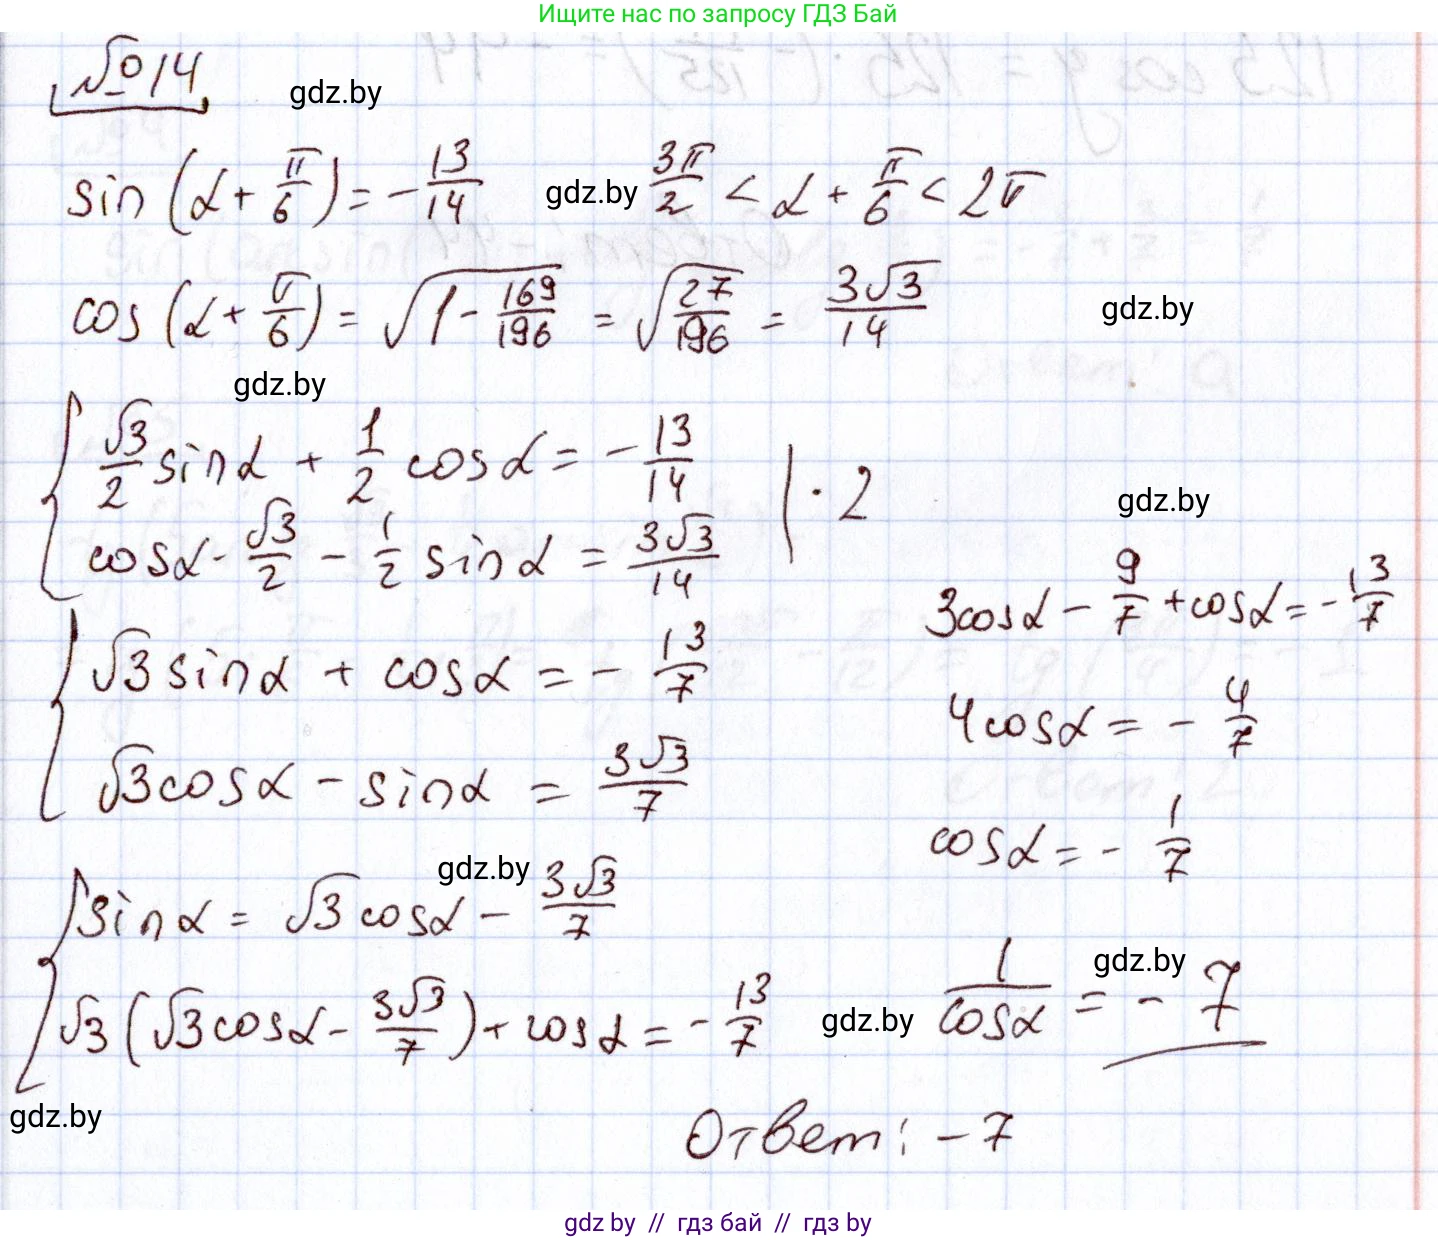 Ищите нас по запросу ГДЗ Бай
№14
gdz.by
sin(α + π/6) = -13/14 gdz.by 3π/2 < α + π/6 < 2π
cos(α + π/6) = √(1 - 169/196) = √(27/196) = 3√3/14
gdz.by
gdz.by
{ √3/2 sinα + 1/2 cosα = -13/14 | · 2
cosα · √3/2 - 1/2 sinα = 3√3/14
gdz.by
{ √3 sinα + cosα = -13/7
√3cosα - sinα = 3√3/7
gdz.by
{ sinα = √3cosα - 3√3/7
√3(√3cosα - 3√3/7) + cosα = -13/7
gdz.by
3cosα - 9/7 + cosα = -13/7
4cosα = -4/7
cosα = -1/7
gdz.by
1/cosα = -7
gdz.by
Ответ: -7
gdz.by // гдз бай // гдз by